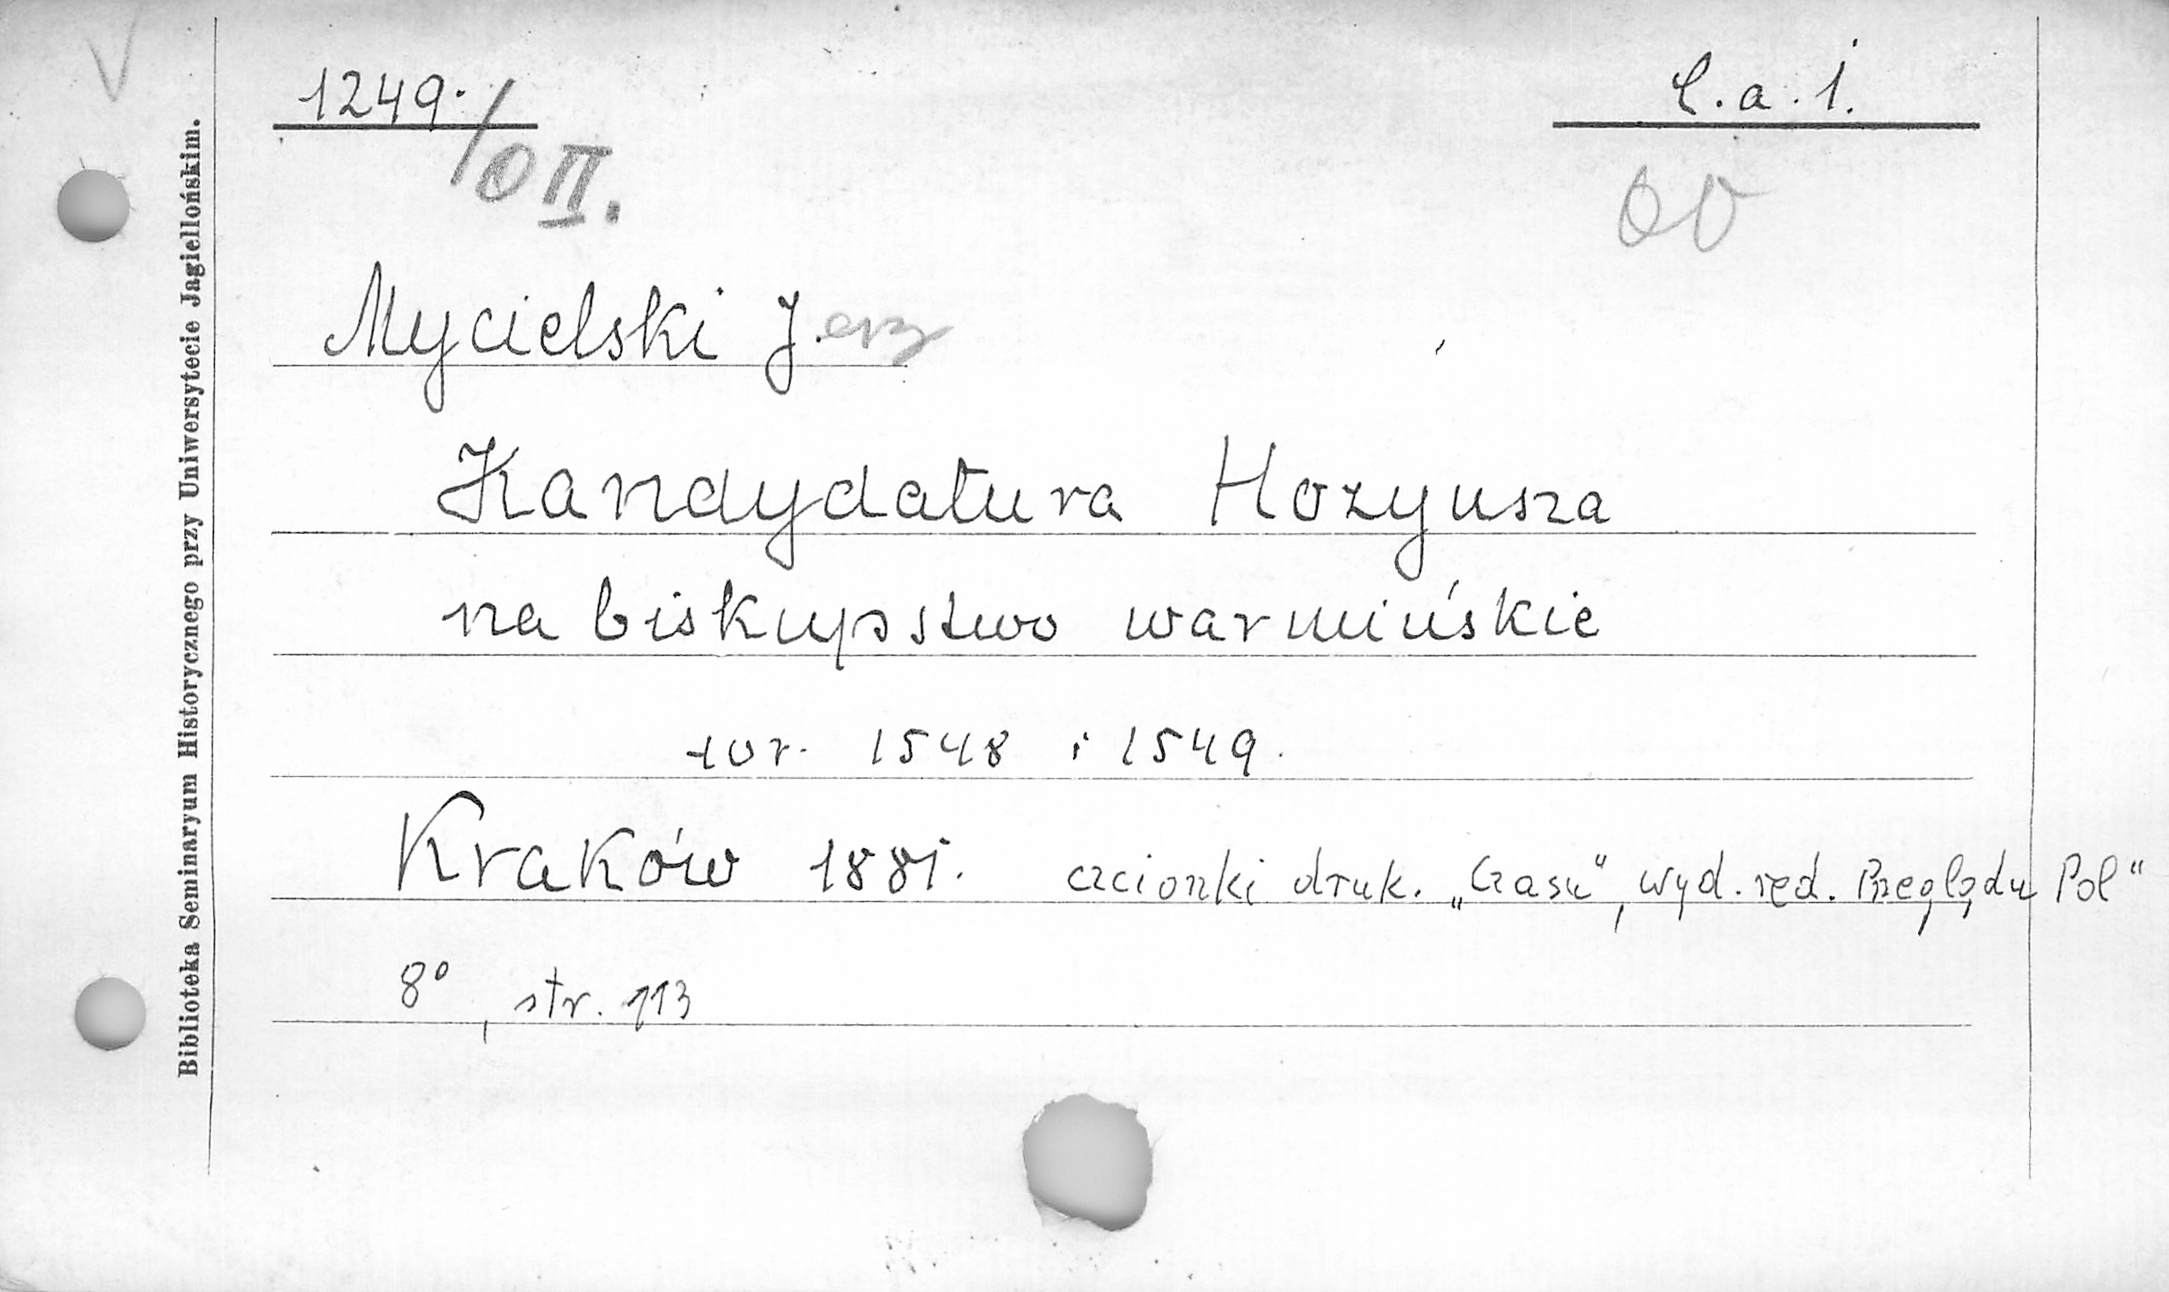 1249. / O II.
C. a. 1.
Mycielski J. erz
Kandydatura Hozyusza
na biskupstwo warmińskie
w r. 1548 i 1549.
Kraków 1881. czcionki druk. „Czasu", wyd. red. Przeglądu Pol"
8°, str. 113
Biblioteka Seminaryum Historycznego przy Uniwersytecie Jagiellońskim.